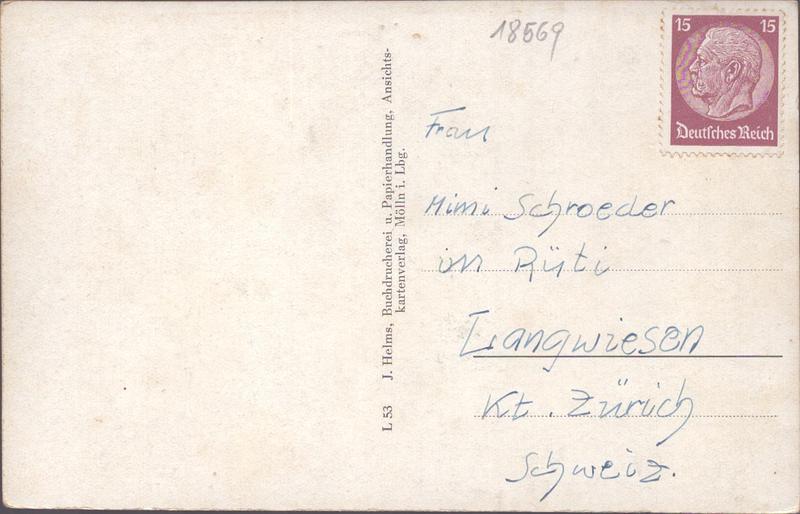 18569
15 15
Deutsches Reich
Frau
Mimi Schroeder
im Rüti
Langwiesen
Kt. Zürich
Schweiz.
L 53 J. Helms, Buchdruckerei u. Papierhandlung, Ansichts-
kartenverlag, Mölln i. Lbg.